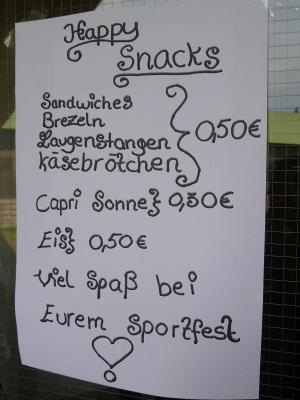 Happy
Snacks
Sandwiches
Brezeln
Laugenstangen } 0,50€
Käsebrötchen
Capri Sonne} 0,30€
Eis} 0,50€
Viel Spaß bei
Eurem Sportfest